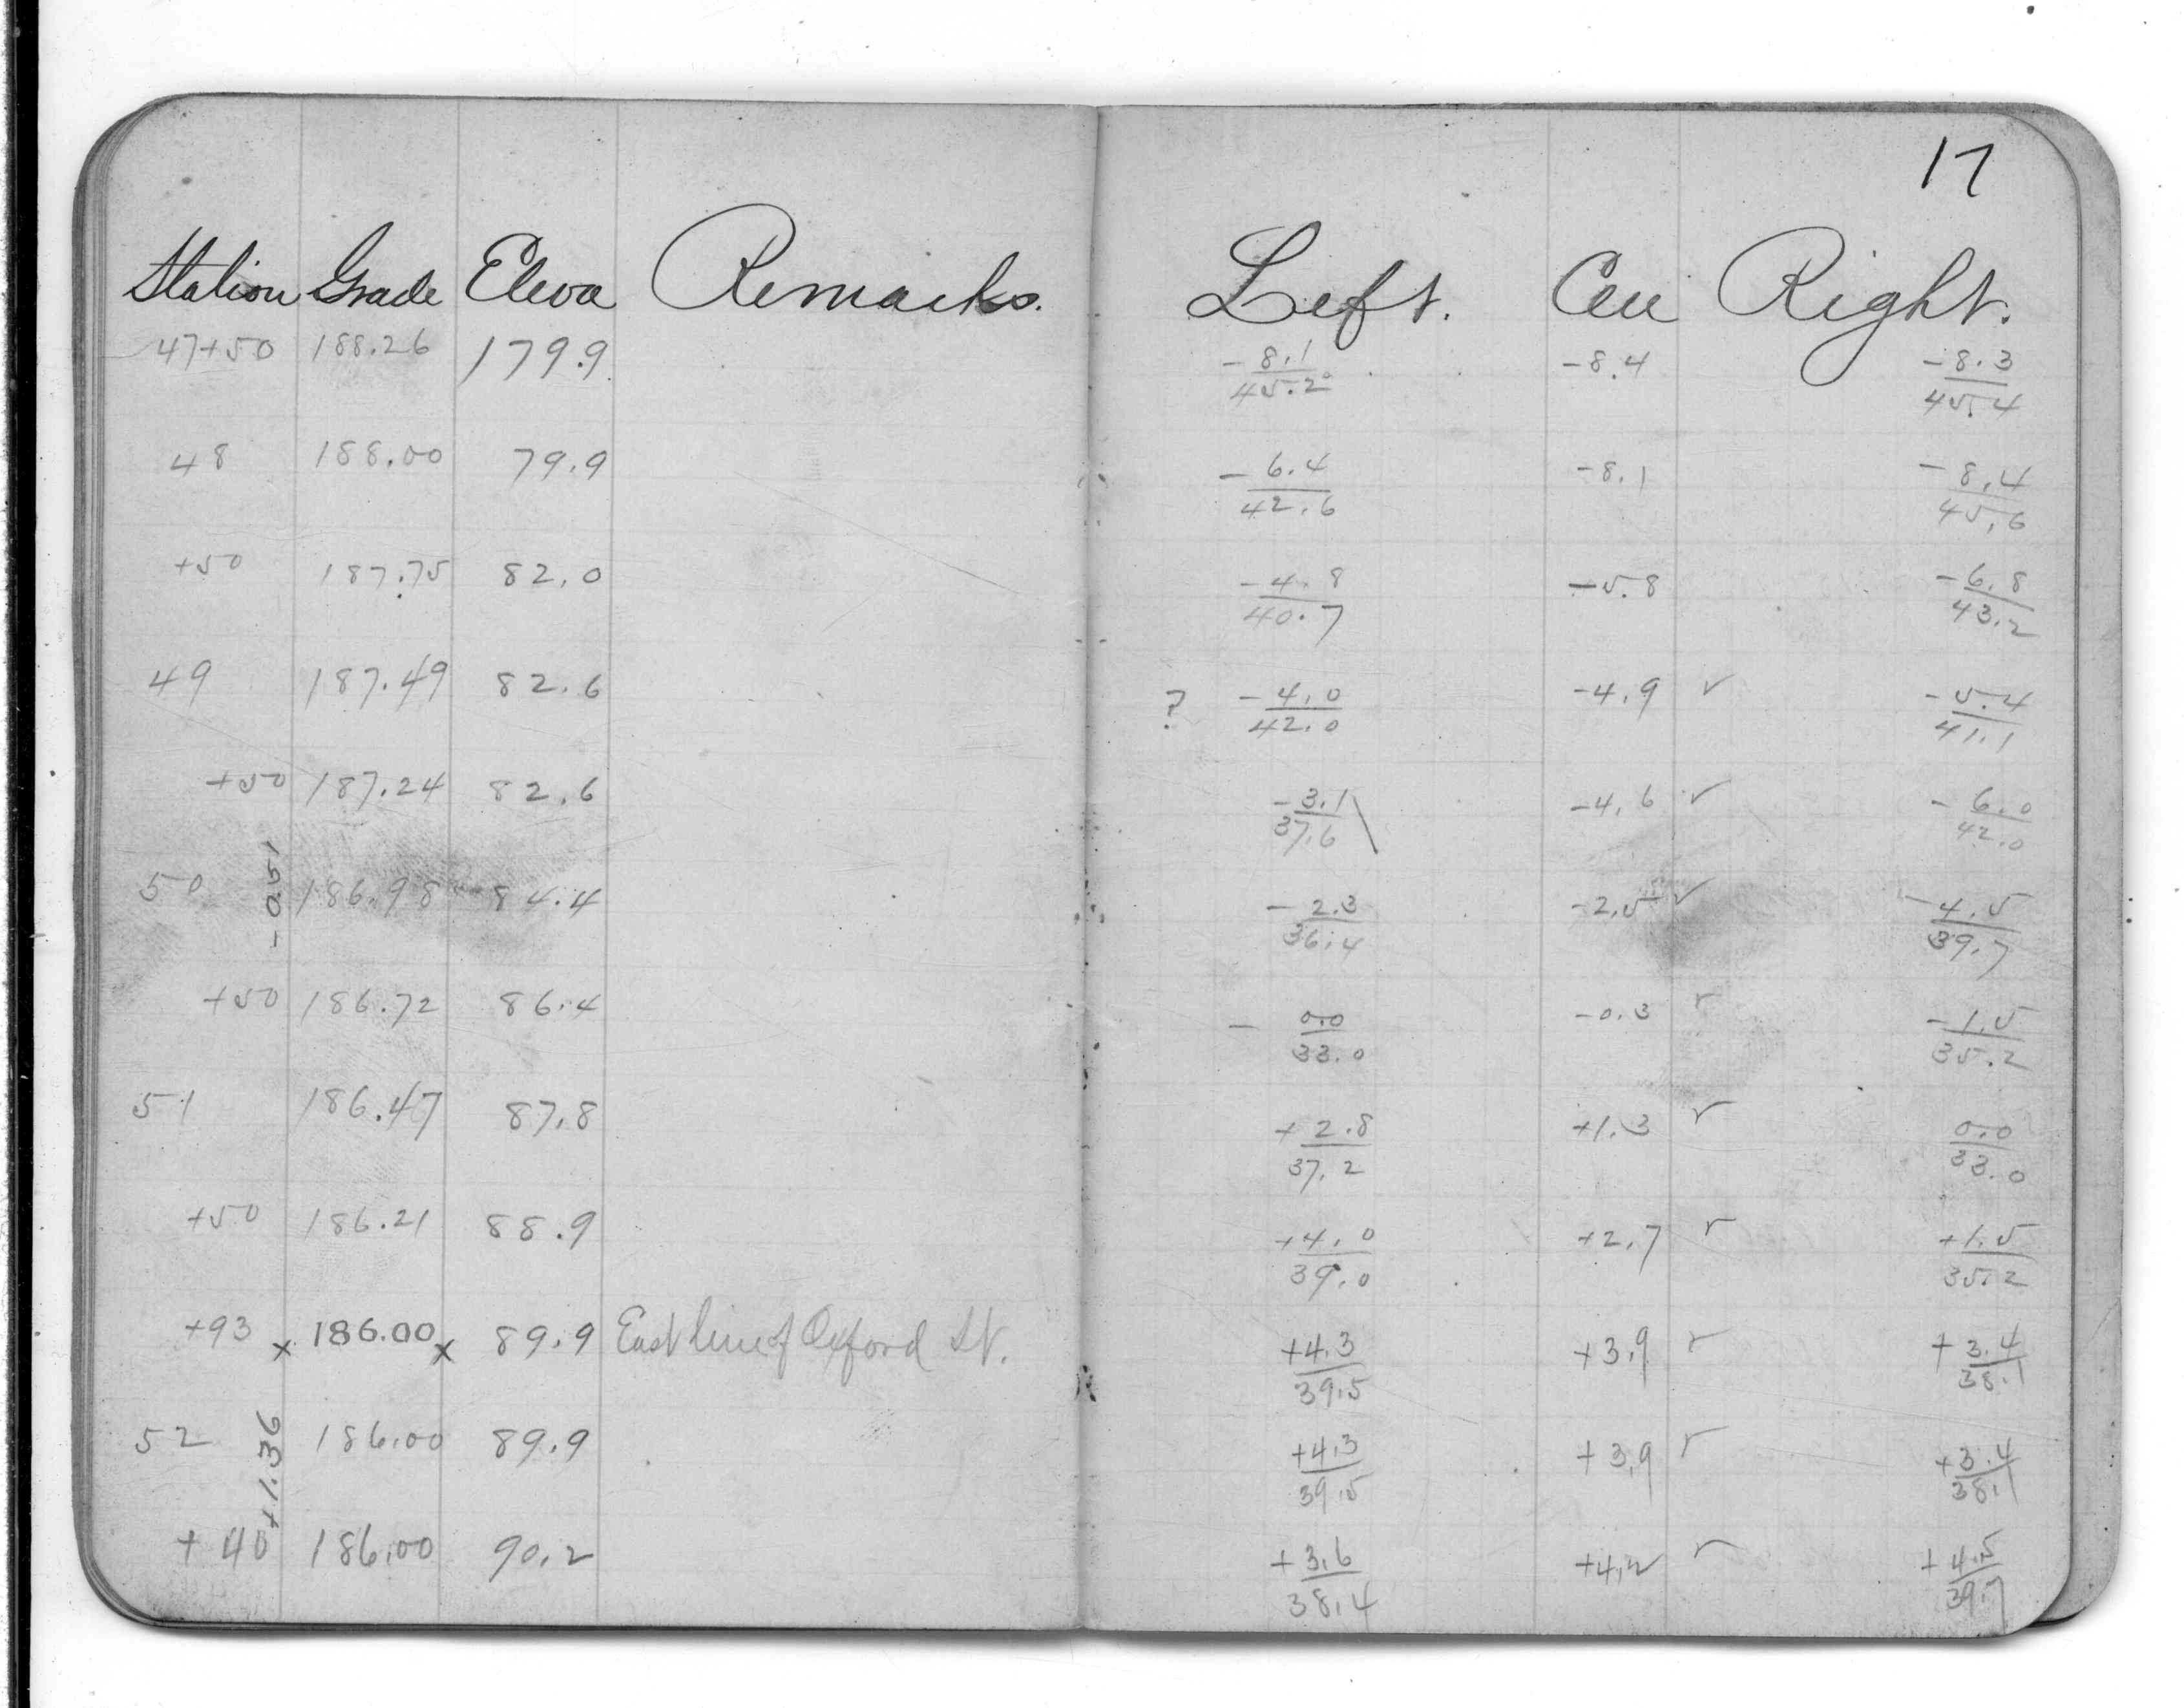 17
Station Grade Eleva Remarks. Left. Cen Right.
47+50 188.26 179.9 -8.1/45.2 -8.4 -8.3/45.4
48 188.00 79.9 -6.4/42.6 -8.1 -8.4/45.6
+50 187.75 82.0 -4.8/40.7 -5.8 -6.8/43.2
49 187.49 82.6 ? -4.0/42.0 -4.9 ✓ -5.4/41.1
+50 187.24 82.6 -3.1/37.6 \ -4.6 ✓ -6.0/42.0
-0.51
50 186.98 84.4 -2.3/36.4 -2.5 ✓ -4.5/39.7
+50 186.72 86.4 - 0.0/33.0 -0.3 ✓ -1.5/35.2
51 186.47 87.8 +2.8/37.2 +1.3 ✓ 0.0/33.0
+50 186.21 88.9 +4.0/39.0 +2.7 ✓ +1.5/35.2
+93 x 186.00 x 89.9 East line of Oxford St. +4.3/39.5 +3.9 ✓ +3.4/38.1
52 186.00 89.9 +4.3/39.5 +3.9 ✓ +3.4/38.1
+1.36
+40 186.00 90.2 +3.6/38.4 +4.2 ✓ +4.5/39.7